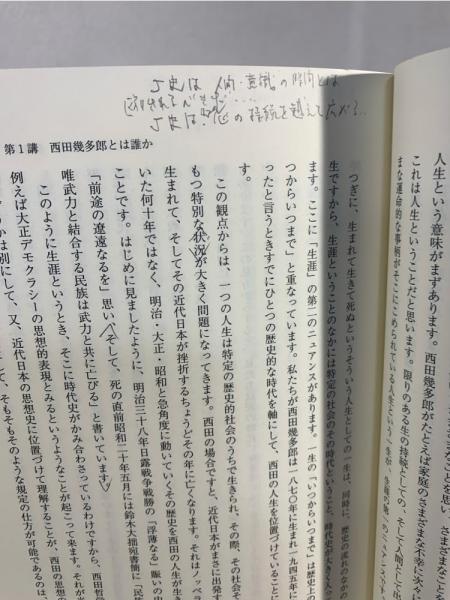 人生という意味がまずあります。西田幾多郎がたとえば家庭のさまざまな不幸に次々に
これは人生ということだと思います。限りのある生の持続としての、そして人間
まな運命的な事柄がそこにこめられている人生という一生が、
J史は 人間・意識の時間とは
J史は、心の持続を越えて広がる…
第1講　西田幾多郎とは誰か
つぎに、生まれて生きて死ぬというそういう人生としての一生は、同時に、歴史の流れのなかの
生ですから、生涯ということのなかには特定の社会のその時代ということ、時代史が大きく入っ
ます。ここに「生涯」の第二のニュアンスがあります。一生の「いつからいつまで」は歴史上の
つからいつまで」と重なっています。私たちが西田幾多郎は一八七〇年に生まれ一九四五年に
ったと言うときすでにひとつの歴史的な時代を軸にして、西田の人生を位置づけていることに
この観点からは、一つの人生は特定の歴史的社会のうちで生きられ、その際、その社会
もつ特別な状況が大きく問題になってきます。西田の場合ですと、近代日本がまさに出発す
生まれて、そしてその近代日本が挫折するちょうどその年に亡くなります。それはノッペラ
いた何十年ではなく、明治・大正・昭和と急角度に動いていくその歴史を西田の人生が生き
ことです。はじめに見ましたように、明治三十八年日露戦争戦勝の「浮薄なる」賑いの
「前途の遼遠なるを」思い、そして、死の直前昭和二十年五月には鈴木大拙宛書簡に「民
唯武力と結合する民族は武力と共に亡びる」と書いています。
このように生涯というとき、そこに時代史がかみ合わさっているわけですから、西田哲
例えば大正デモクラシーの思想的表現とみるというようなことが起こって来ます。それが
かは別にして、又、近代日本の思想史に位置づけて理解することが、西田の思想
て、そもそもそのような規定の仕方が可能であるのは、